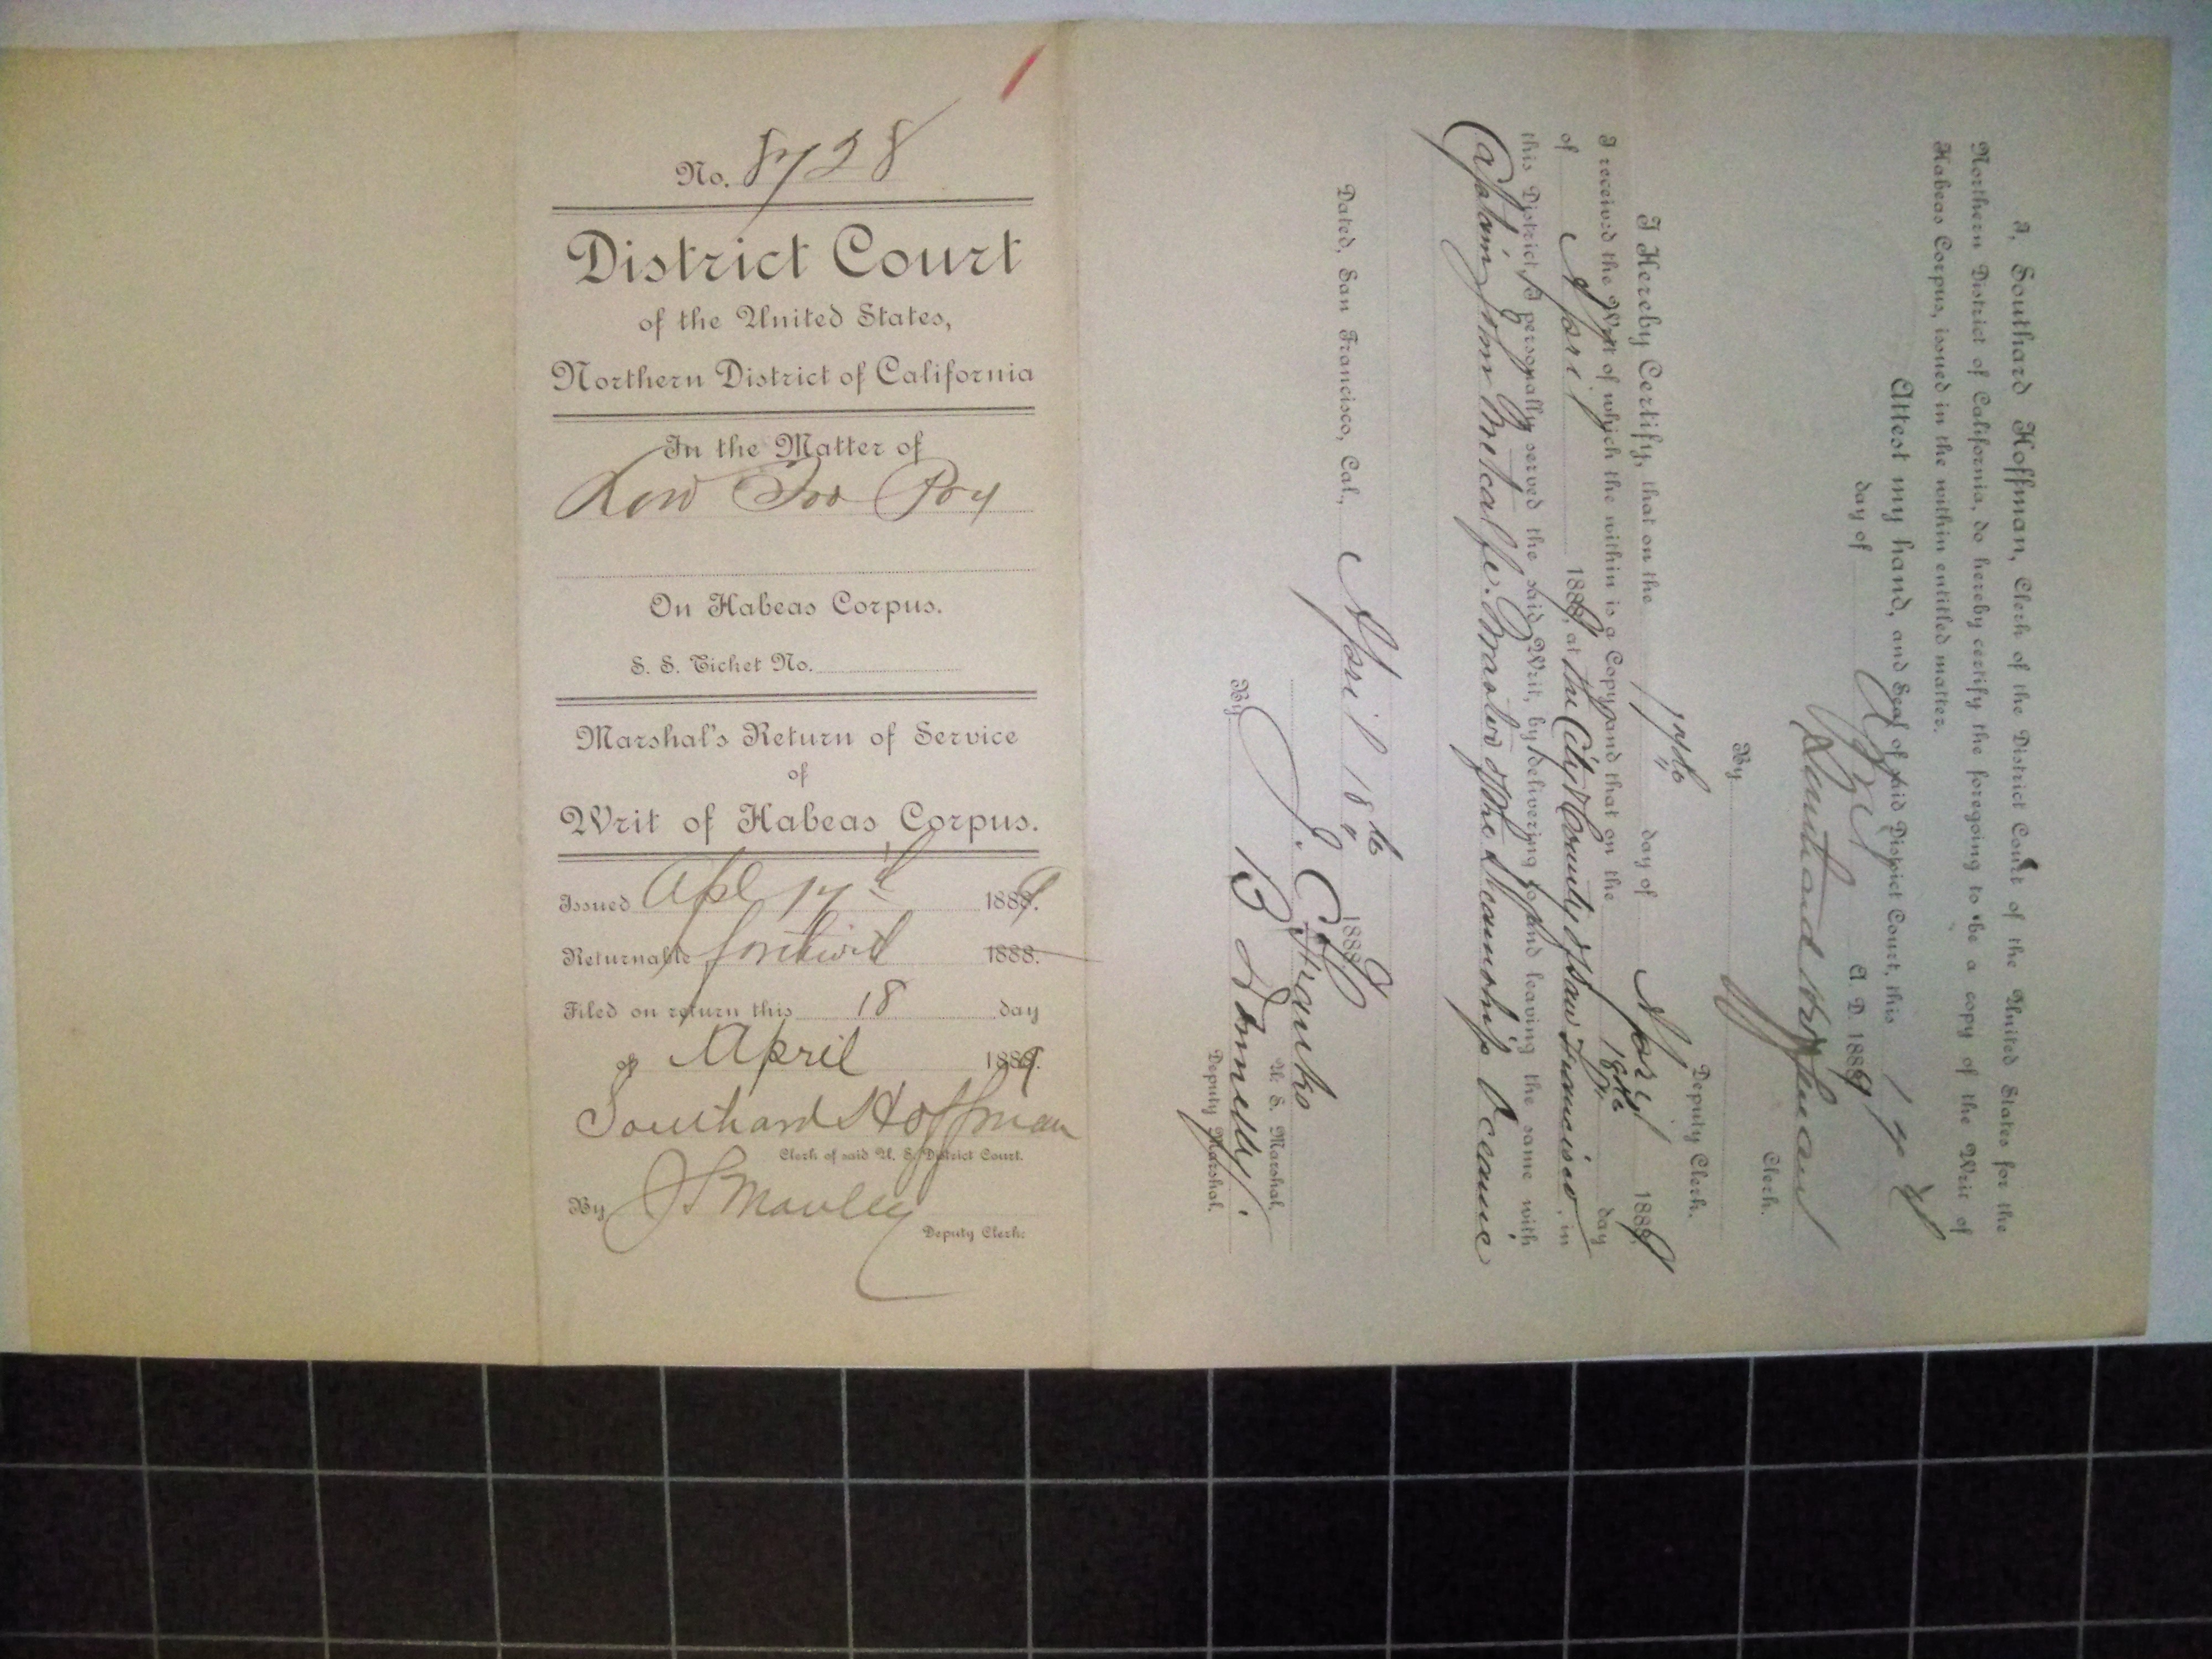 No. 8728
District Court
of the United States,
Northern District of California
In the Matter of
Low Foo Poy
On Habeas Corpus.
S. S. Ticket No.
Marshal's Return of Service
of
Writ of Habeas Corpus.
Issued Apl 17th 1889.
Returnable forthwith 1888.
Filed on return this 18 day
of April 1889.
Southard Hoffman
Clerk of said U. S. District Court.
By J S Manley
Deputy Clerk.
I, Southard Hoffman, Clerk of the District Court of the United States for the
Northern District of California, do hereby certify the foregoing to be a copy of the Writ of
Habeas Corpus, issued in the within entitled matter.
Attest my hand, and Seal of said District Court, this 17th
day of Apl A. D. 1889
Southard Hoffman
Clerk.
By
Deputy Clerk.
I Hereby Certify, that on the 17th day of April 1889,
I received the Writ of which the within is a Copy and that on the 18th day
of April 1889, at the City & County of San Francisco, in
this District, I personally served the said Writ, by delivering to and leaving the same with
Captain John Metcalfe. Master of the Steamship Oceanic
Dated, San Francisco, Cal., April 18th 1889
J. C. Franks
U. S. Marshal.
By B Donnelly.
Deputy Marshal.